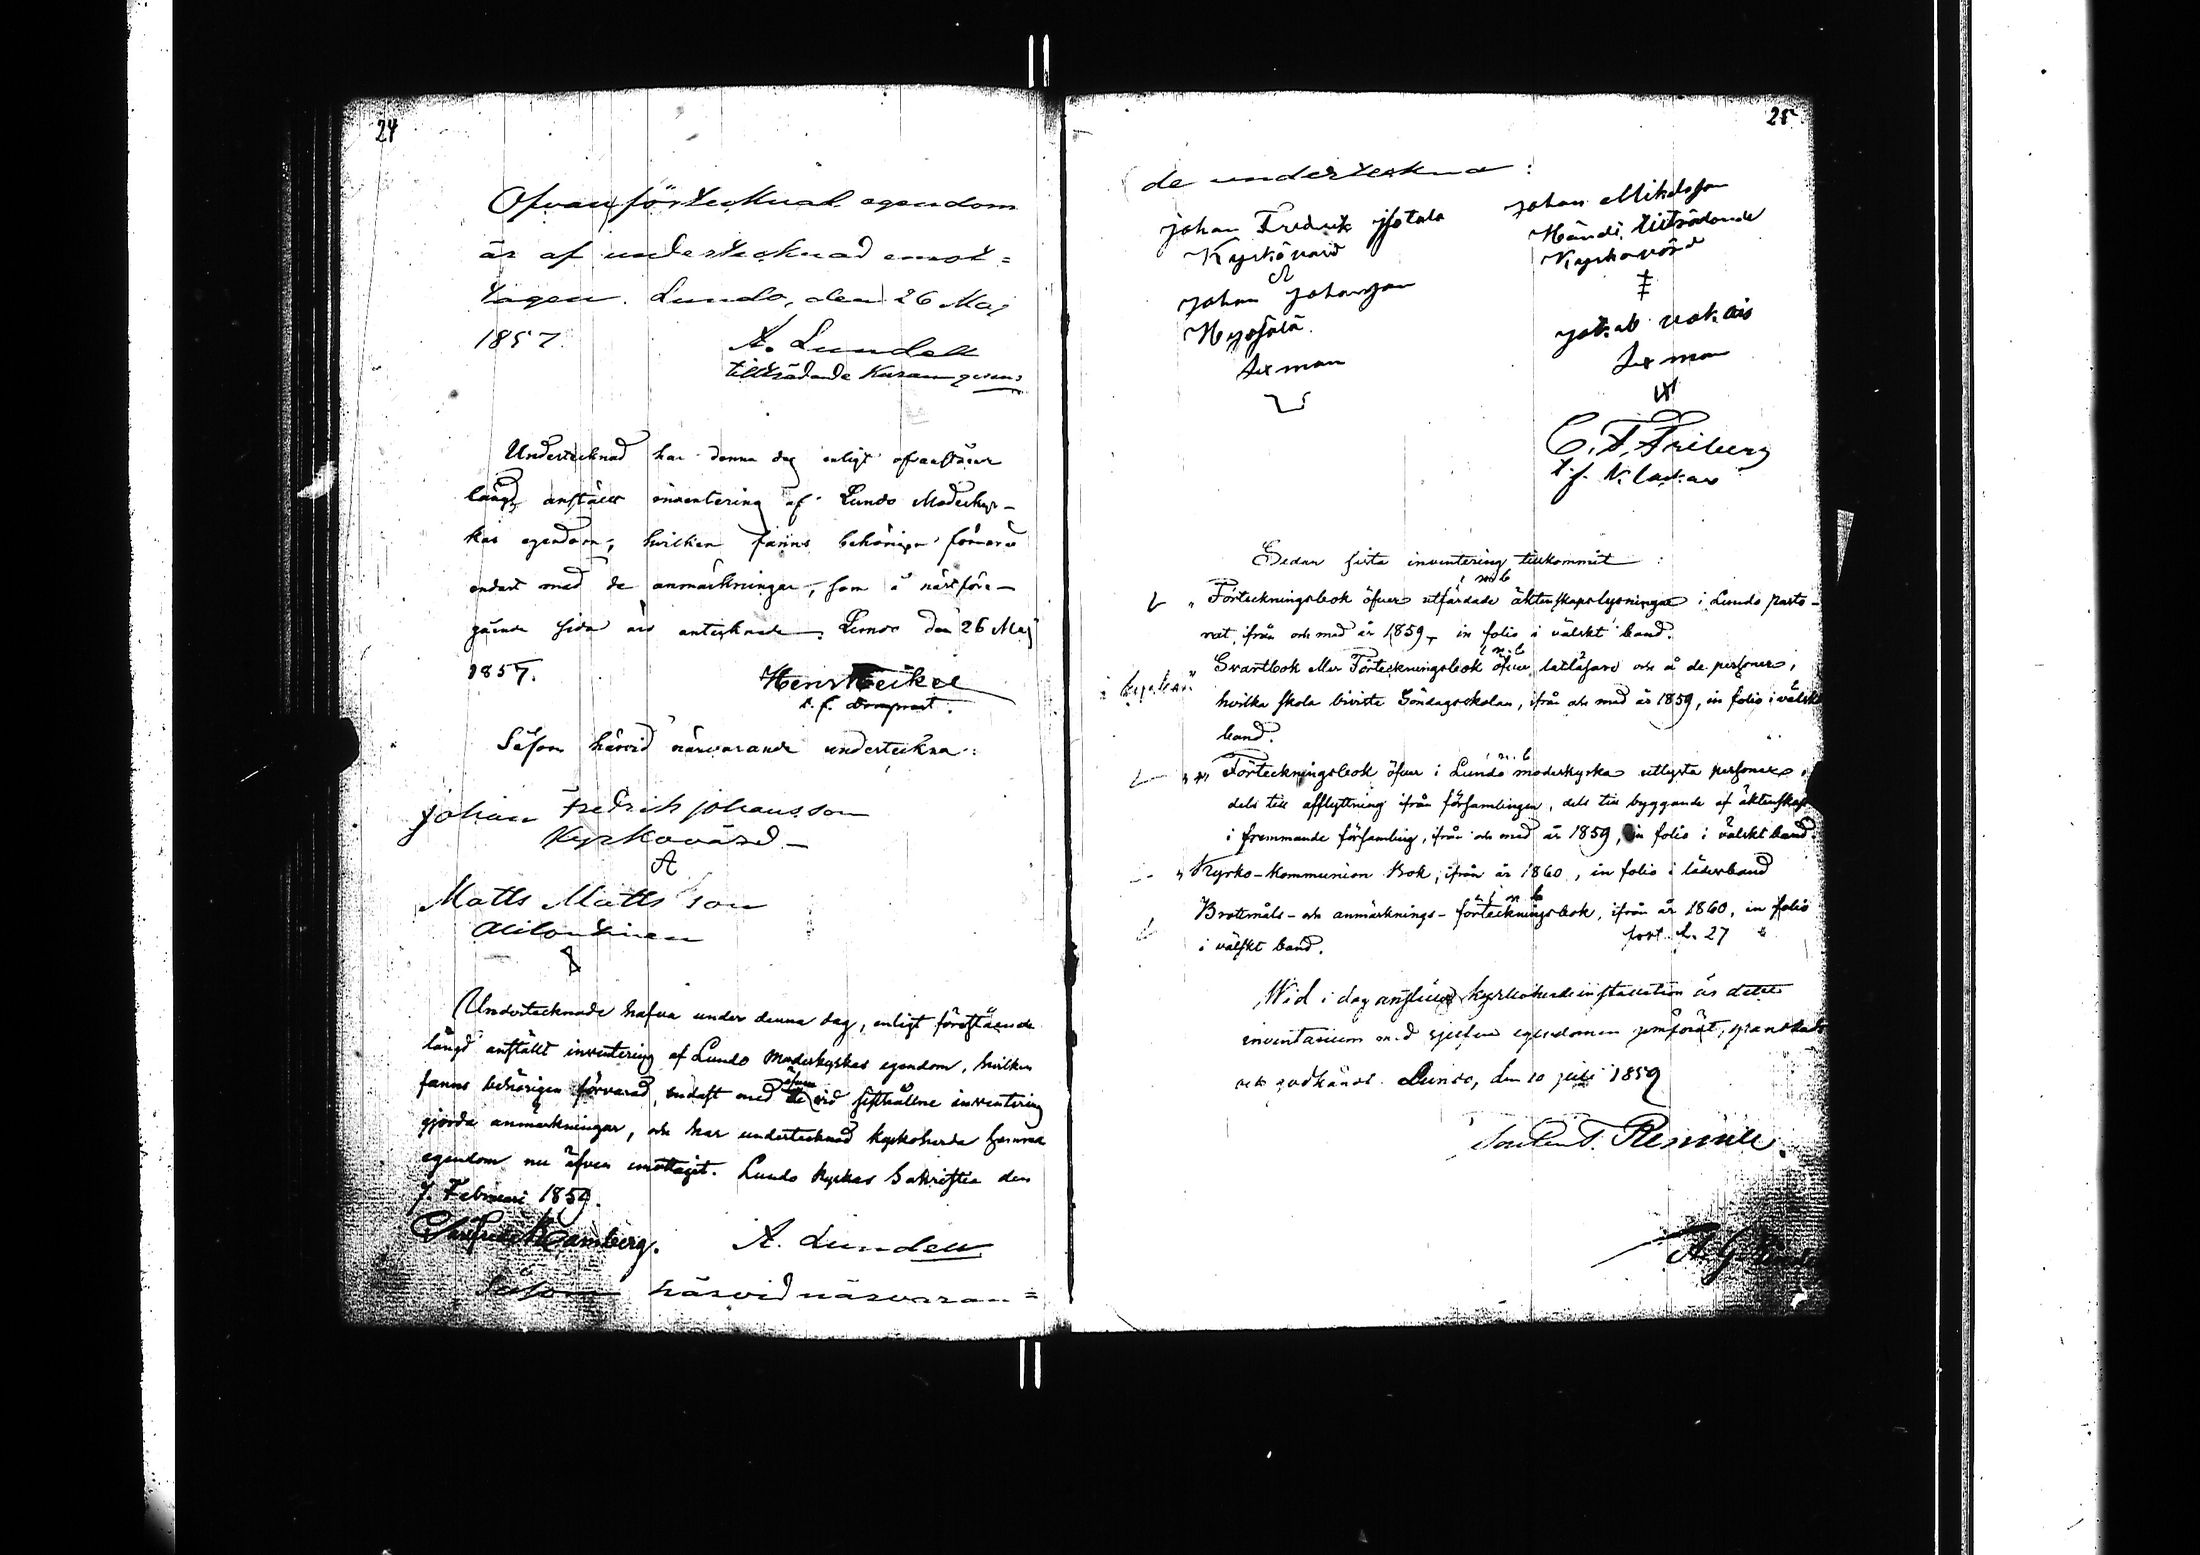 24
Ofvanförtecknad egendom
är af undertecknad emot=
tagen. Lundo, den 26 Maj
1857.
A. Lundell
tillträdande Kuram gerens
Undertecknad har denna dag enligt ofvanstående
längd anställt inventering af Lundo Moderkyr-
kas egendom, hvilken fanns behörigen förvarad
endast med de anmärkningar, som å nästföre-
gående sida äro antecknade. Lundo den 26 Maj
1857.
Henr Heikel
t. f. Domprost.
Såsom härvid närvarande underteckna:
Johan Fredrich Johansson
Kyrkovärd
Matts Mattsson
Undertecknade hafva under denna dag, enligt föreстående
längd anställt inventering af Lundo Moderkyrkas egendom, hvilken
fanns behörigen förvarad, endast med de äfven vid sisthållne inventering
gjorda anmärkningar, och har undertecknad kyrkoherde samma
egendom nu äfven emottagit. Lundo Kyrkas Sakristia den
7 Februari 1859.
Ramberg. A. Lundell
Såsom härvid närvaran=
25
de underteckna:
Johan Fredrik
Kyrkovärd
Johan Johansson
Sexman
Johan Mikelsson
tillträdande
Kyrkovärd
Jakob
Sexman
C. F. Friberg
t. f. Klockar
Sedan sista inventering tillkommit:
" Förteckningsbok öfver utfärdade äktenskapslysningar i Lundo pasto-
rat, ifrån och med år 1859, in folio i välskt band.
" Svartbok eller Förteckningsbok öfver latläsare och å de personer,
hvilka skola bivista Söndagsskolan, ifrån och med år 1859, in folio i välskt
band.
" Förteckningsbok öfver i Lundo moderkyrka utlysta personer,
dels till afflyttning ifrån församlingen, dels till byggande af äktenskap
i fremmande församling, ifrån och med år 1859, in folio i välskt band.
" Kyrko-kommunion Bok, ifrån år 1860, in folio i läderband
Brottmåls- och anmärknings-förteckningsbok, ifrån år 1860, in folio
i välskt band.
Wid i dag anställd kyrkoherdeinstallation är detta
inventarium med sjelfva egendomen jemfördt, granskadt
och godkändt. Lundo, den 10 juli 1859